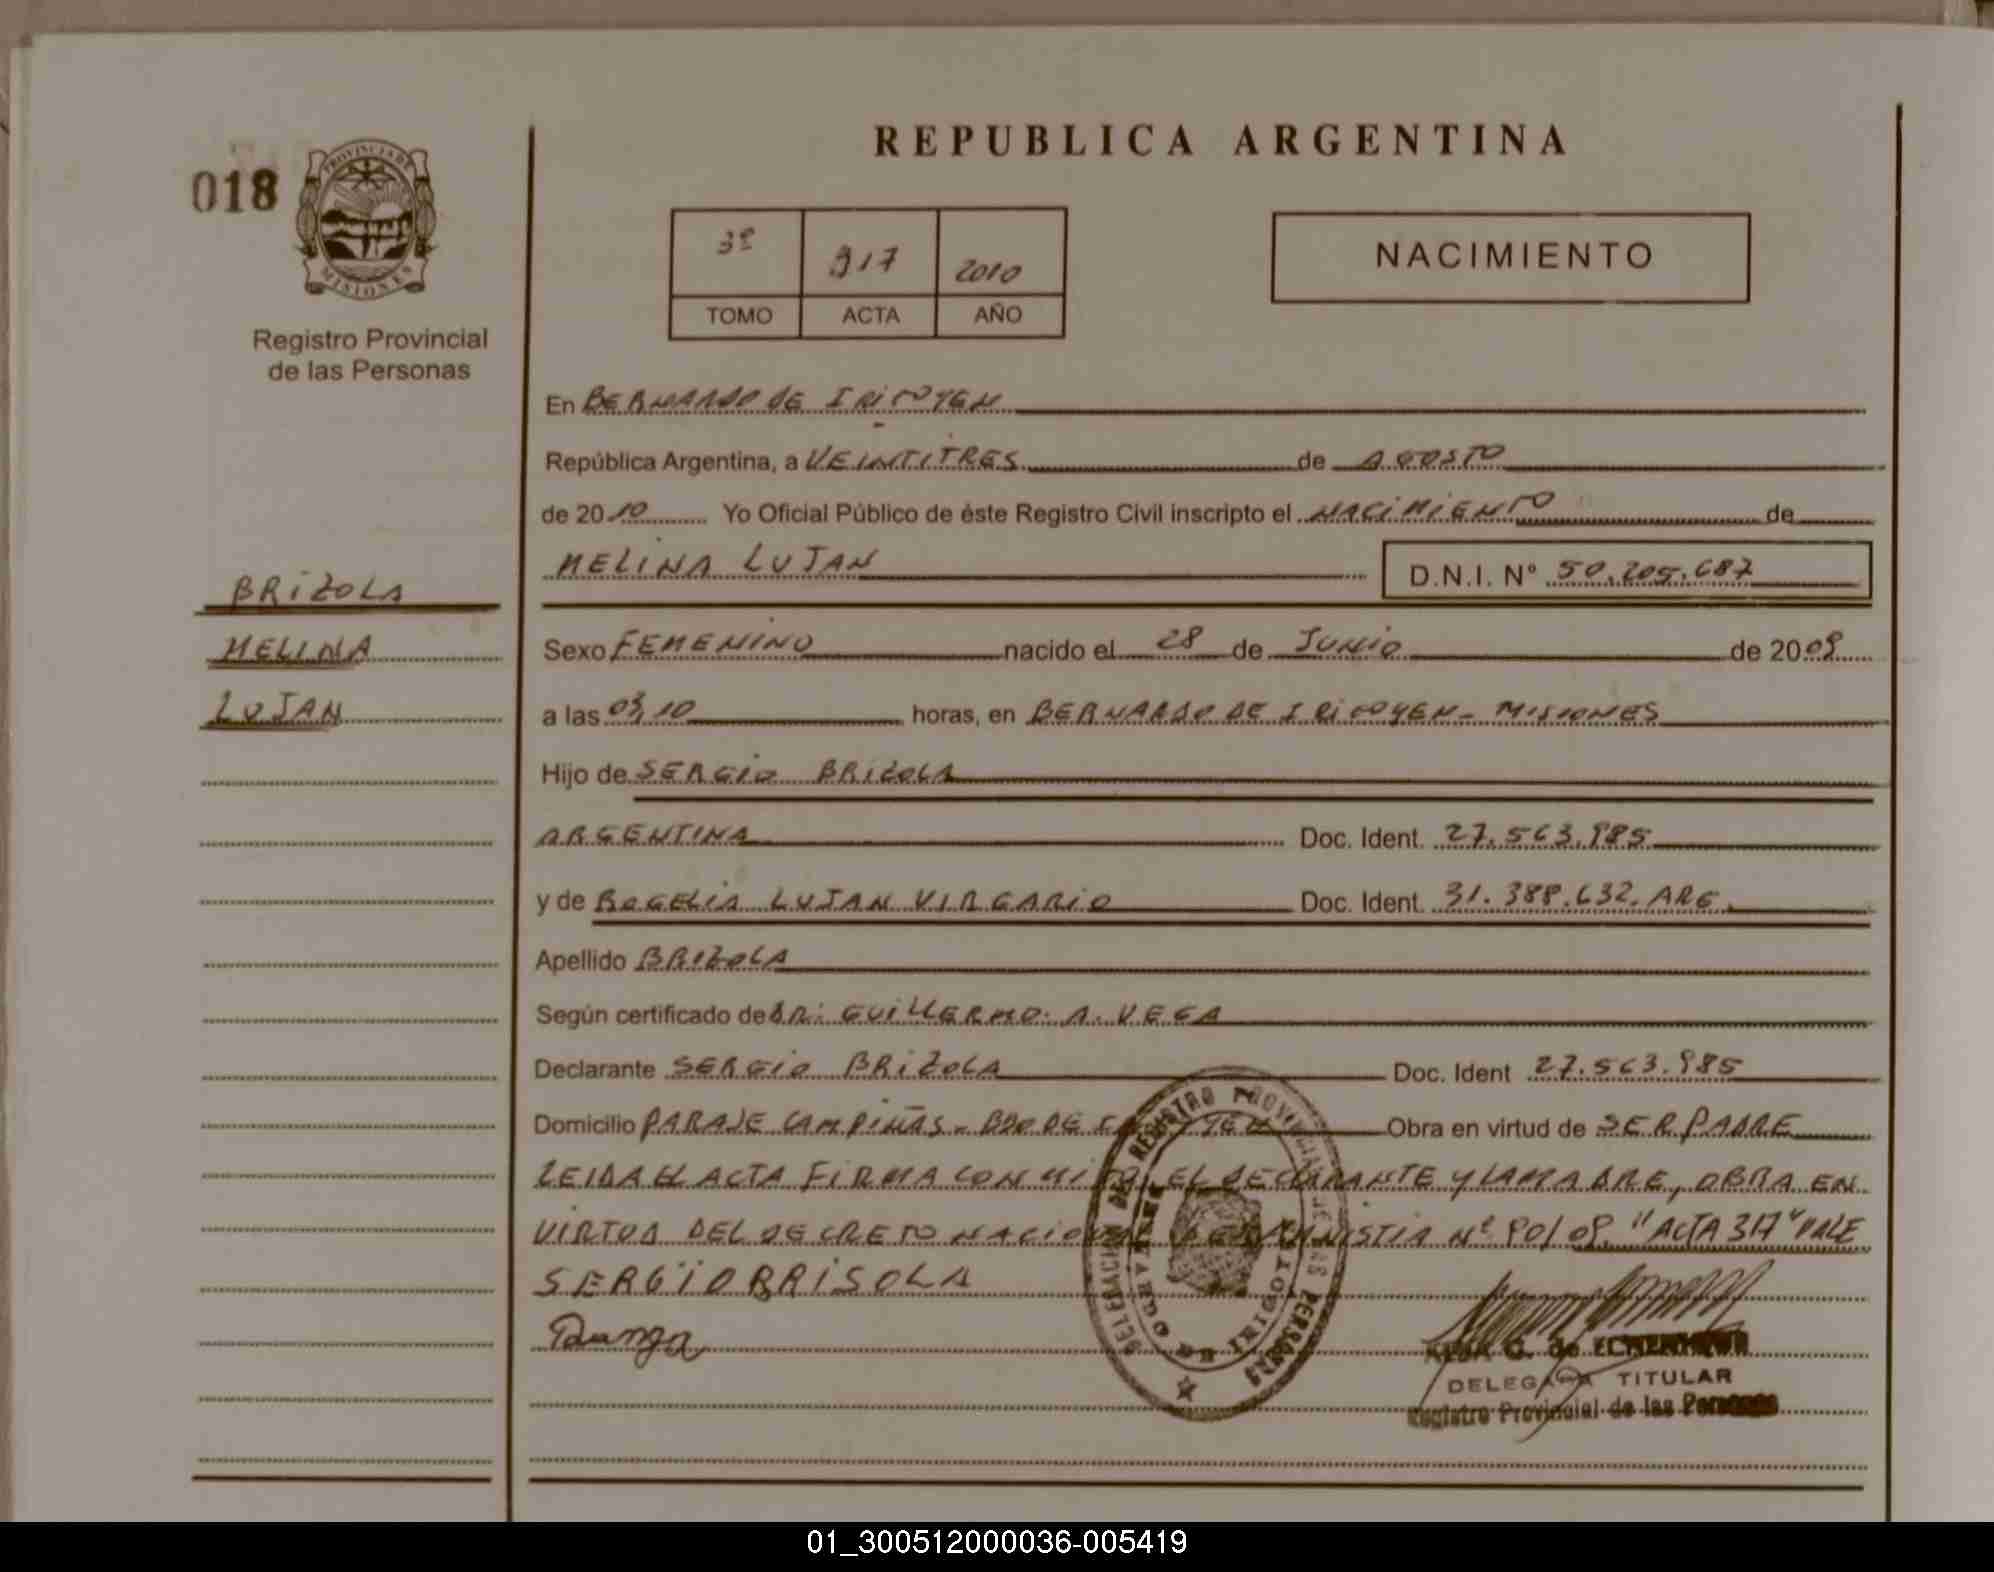 REPUBLICA ARGENTINA
018
PROVINCIA DE
MISIONES
Registro Provincial
de las Personas
3º 317 2010
TOMO ACTA AÑO
NACIMIENTO
En BERNARDO DE IRIGOYEN
República Argentina, a VEINTITRES de AGOSTO
de 2010 Yo Oficial Público de éste Registro Civil inscripto el NACIMIENTO de
MELINA LUJAN D.N.I. Nº 50.205.687
BRIZOLA
MELINA
LUJAN
Sexo FEMENINO nacido el 28 de JUNIO de 2009
a las 03,10 horas, en BERNARDO DE IRIGOYEN - MISIONES
Hijo de SERGIO BRIZOLA
ARGENTINA Doc. Ident. 27.563.985
y de ROGELIA LUJAN VIRGARIO Doc. Ident. 31.388.632. ARG.
Apellido BRIZOLA
Según certificado de DR. GUILLERMO A. VEGA
Declarante SERGIO BRIZOLA Doc. Ident 27.563.985
Domicilio PARAJE CAMPIÑAS - BDO DE IRIGOYEN Obra en virtud de SER PADRE
LEIDA EL ACTA FIRMA CON MIGO EL DECLARANTE Y LA MADRE, OBRA EN
VIRTUD DEL DECRETO NACIONAL DE AMNISTIA Nº 90/09. "ACTA 317" VALE
SERGIO BRISOLA
DELEGACION DEL REGISTRO PROVINCIAL DE LAS PERSONAS
BERNARDO DE IRIGOYEN
DELEGADA TITULAR
Registro Provincial de las Personas
01_300512000036-005419